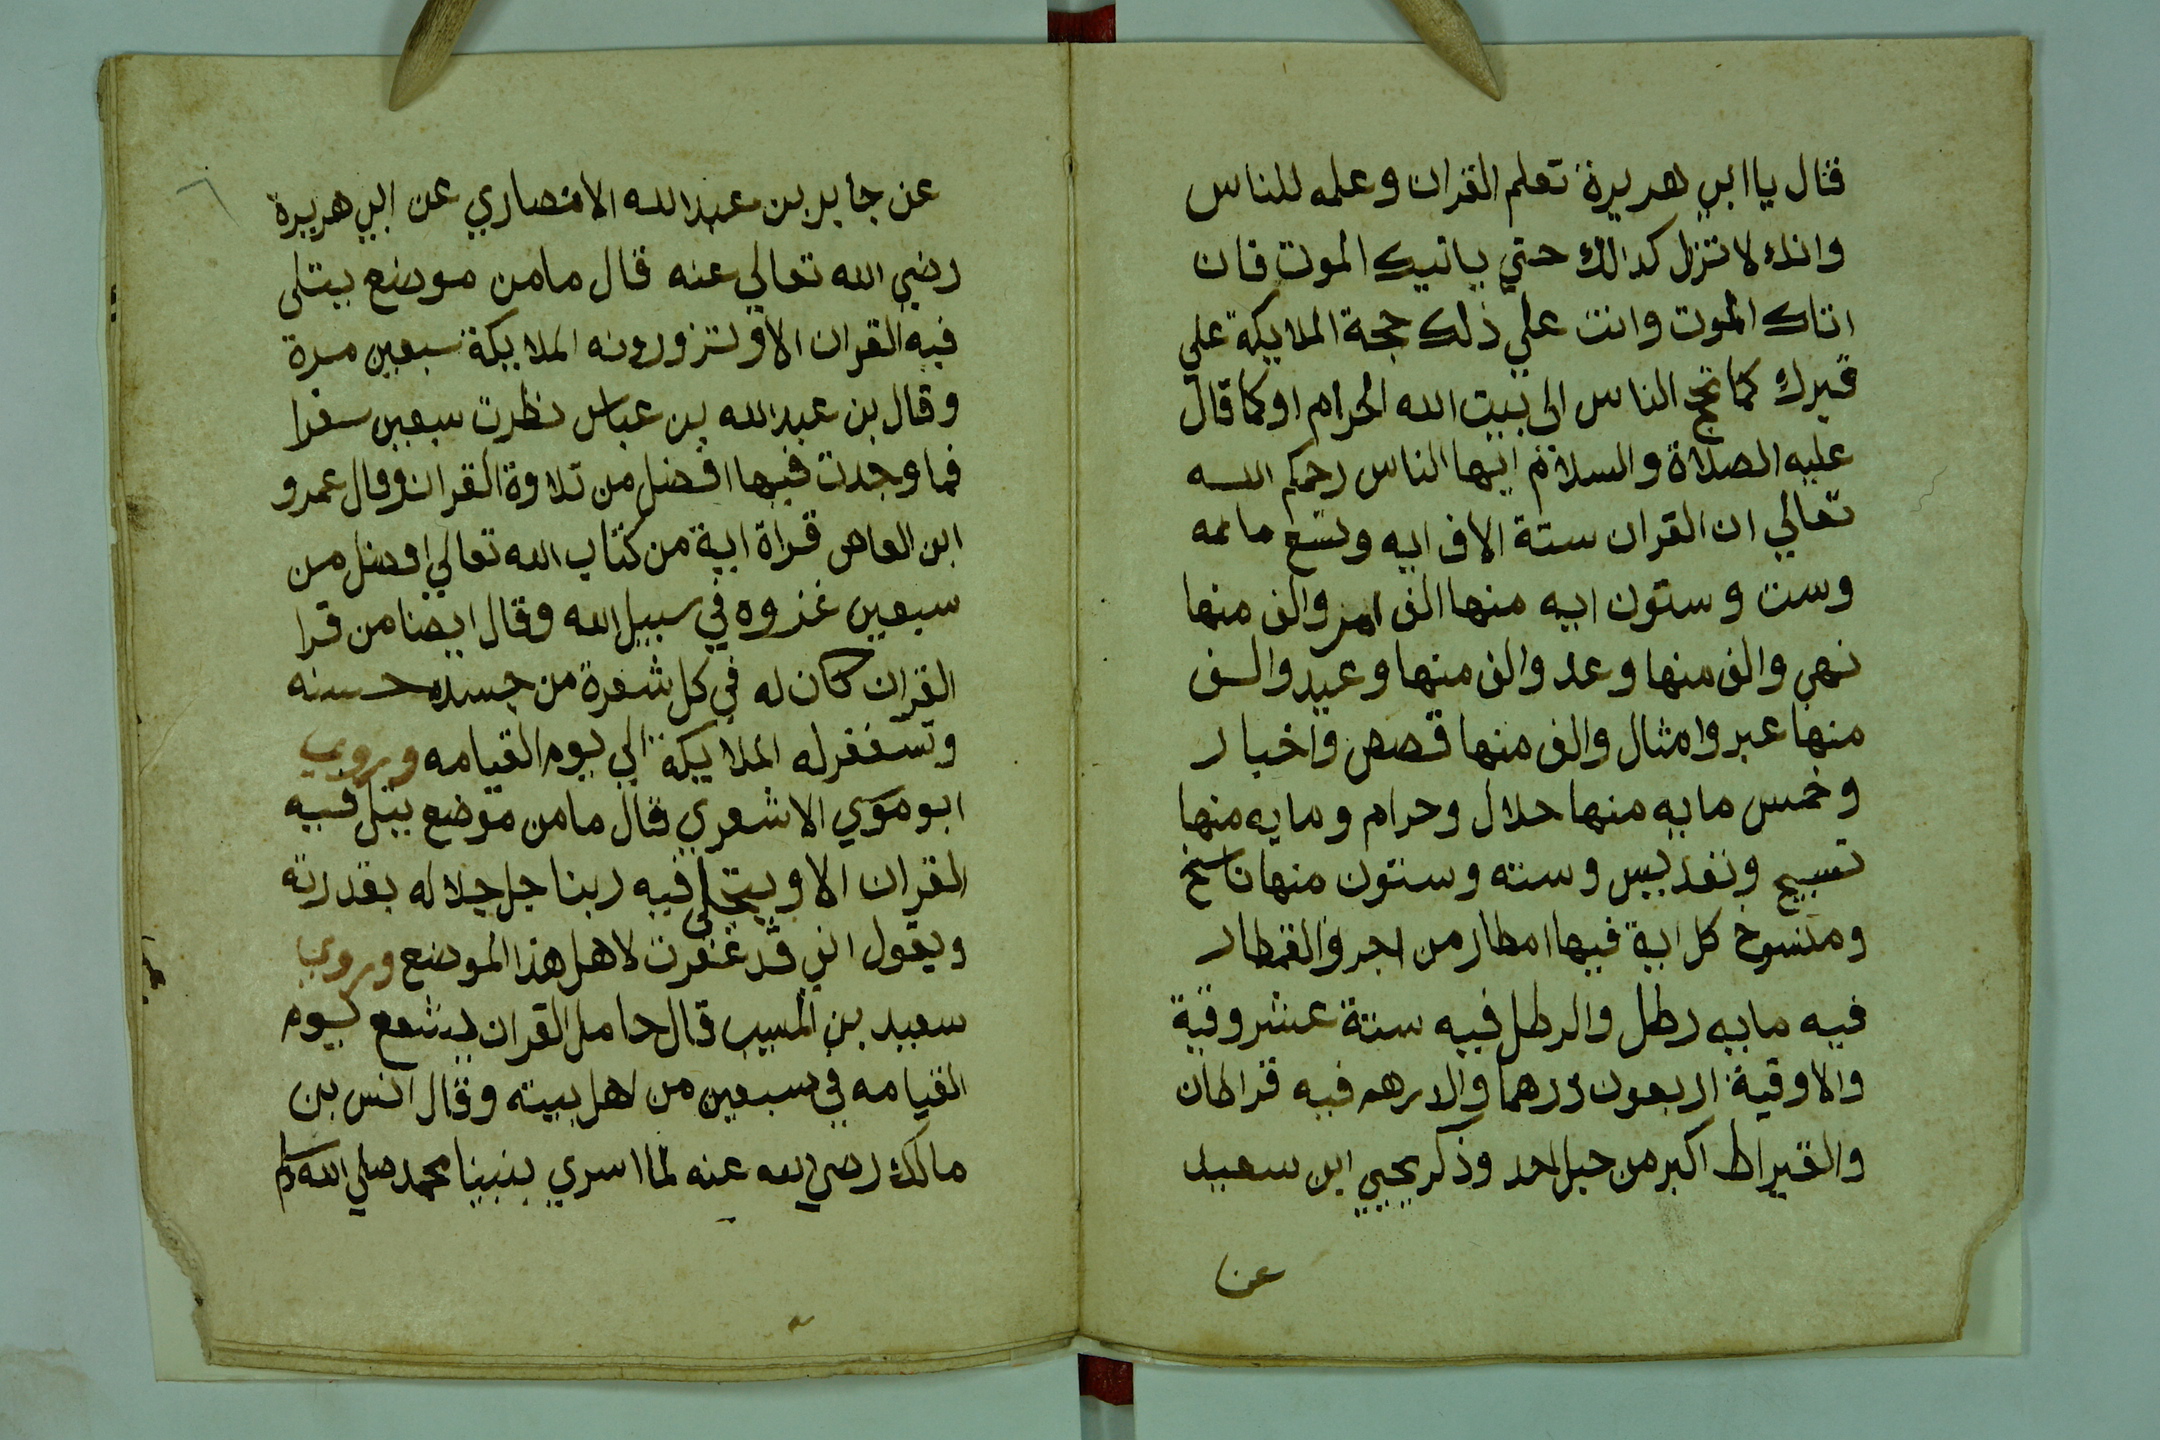 قال يا ابي هريرة تعلم القران وعلمه للناس
وانك لا تزل كدالك حتي ياتيك الموت فان
اتاك الموت وانت علي ذلك حجة الملايكة علي
قبرك كما تحج الناس الى بيت الله الحرام او كما قال
عليه الصلاة والسلام ايها الناس رحمكم الله
تعالي ان القران ستة الاف ايه وتسع مايه
وست وستون ايه منها الف امر والف منها
نهي والف منها وعد والف منها وعيد والف
منها عبر وامثال والف منها قصص واخبار
وخمس مايه منها حلال وحرام ومايه منها
تسبيح وتقديس وسته وستون منها ناسخ
ومنسوخ كل اية فيها امطار من اجر والقمطار
فيه مايه رطل والرطل فيه ستة عشر وقية
والاوقية اربعون درهما والدرهم فيه قراطان
والقيراط اكبر من جبل احد وذكر يحيي ابن سعيد
عن
عن جابر بن عبد الله الانصاري عن ابي هريرة
رضي الله تعالي عنه قال ما من موضع يتلى
فيه القران الا وتزورونه الملايكة سبعين مرة
وقال بن عبد الله بن عباس نظرت سبعين سفرا
فما وجدت فيها افضل من تلاوة القران وقال عمرو
ابن العاص قراة اية من كتاب الله تعالي افضل من
سبعين غزوه في سبيل الله وقال ايضا من قرا
القران كان له في كل شعرة من جسده حسنه
وتستغفر له الملايكة الي يوم القيامه وروي
ابو موسي الاشعري قال ما من موضع يتل فيه
القران الا ويتجلى فيه ربنا جل جلاله بقدرته
ويقول اني قد غفرت لاهل هذا الموضع وروي
سعيد بن المسيب قال حامل القران يشفع يوم
القيامه في سبعين من اهل بيته وقال انس بن
مالك رضي الله عنه لما اسري بنبينا محمد صلي الله